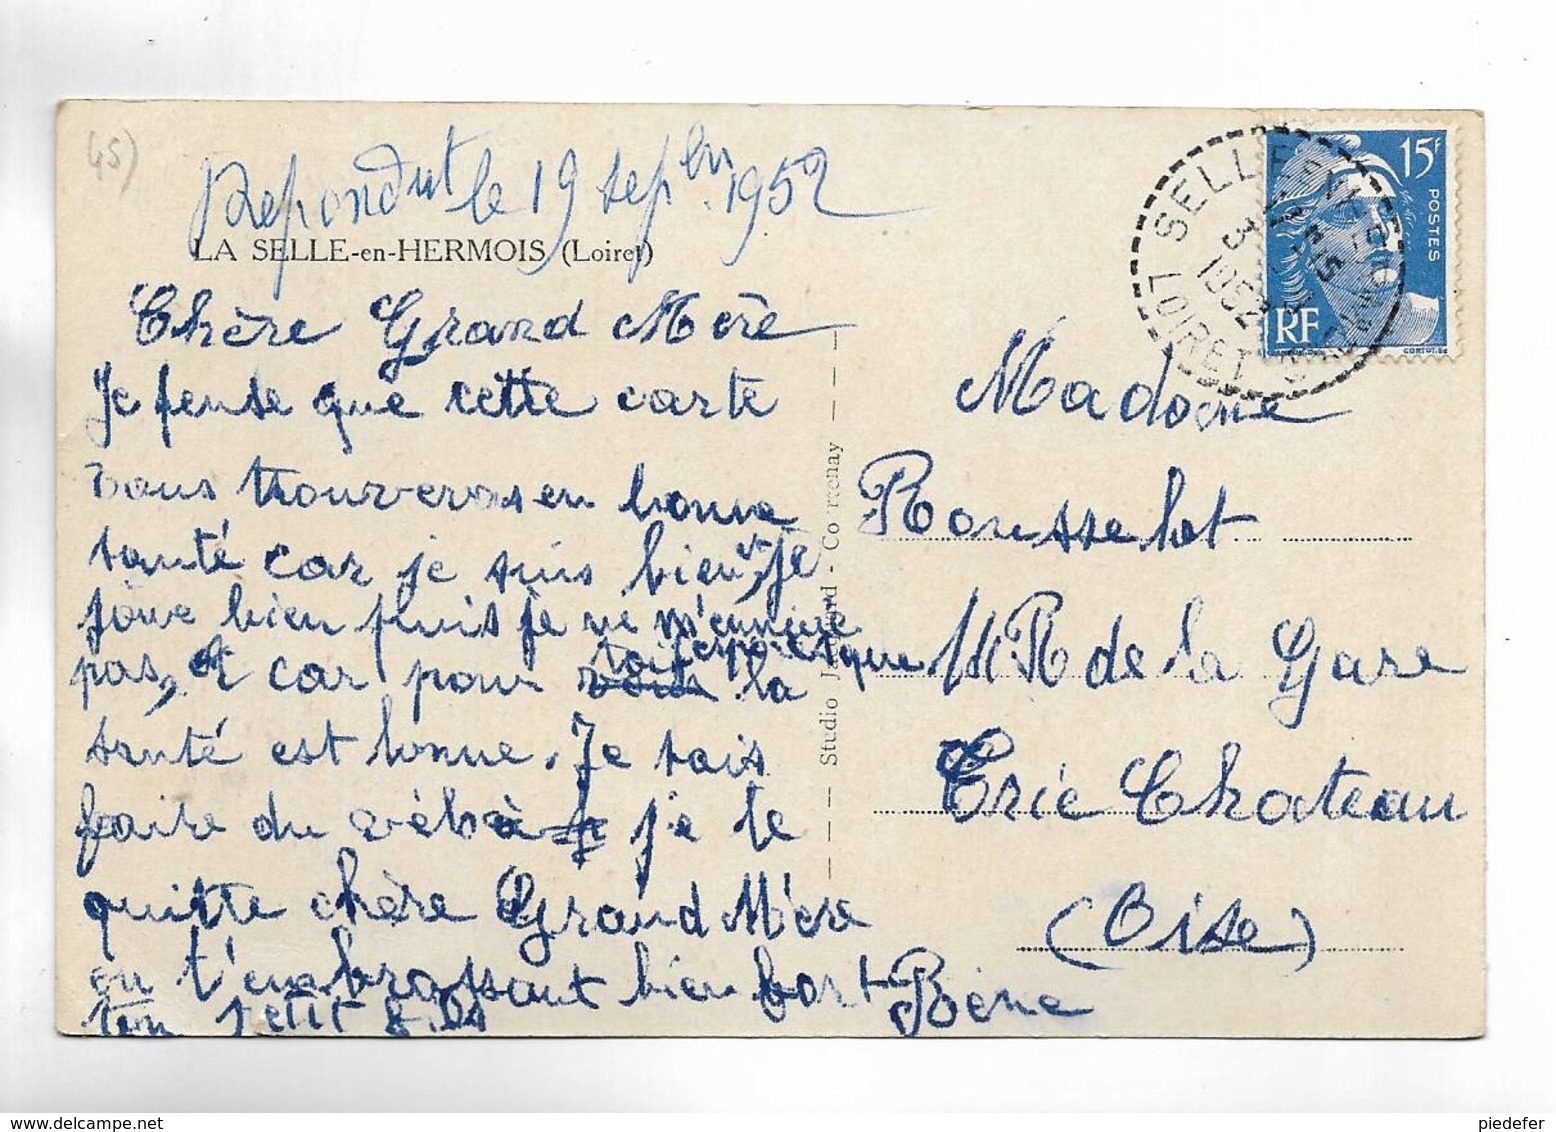 45)
Repondut le 19 sepbre 1952
LA SELLE-en-HERMOIS (Loiret)
Chère Grand Mère
Je pense que cette carte
vous trouveras en bonne
santé car je suis bien, et je
joue bien puis je ne m'ennuie
pas, et car pour toi j'espère que
la
santé est bonne. Je vais
faire du vélo à je te
quitte chère Grand Mère
en t'embrassant bien fort
ton petit fils René
Studio - Courtenay
Madame
Rousselot
R de la Gare
Crie Chateau
(Oise)
15F
POSTES
RF
SELLE
LOIRET
1952
piedefer